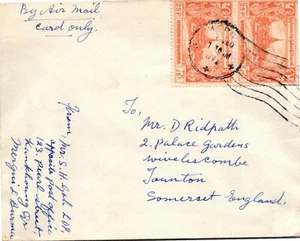 By Air Mail
Card only.
To,
Mr. D Ridpath
2. Palace Gardens
Wiveliscombe
Taunton
Somerset England.
From, Mr. S. H.
opposite Post Office
123. Pearl Street
Kanthoung Qr
Mergui & Burma